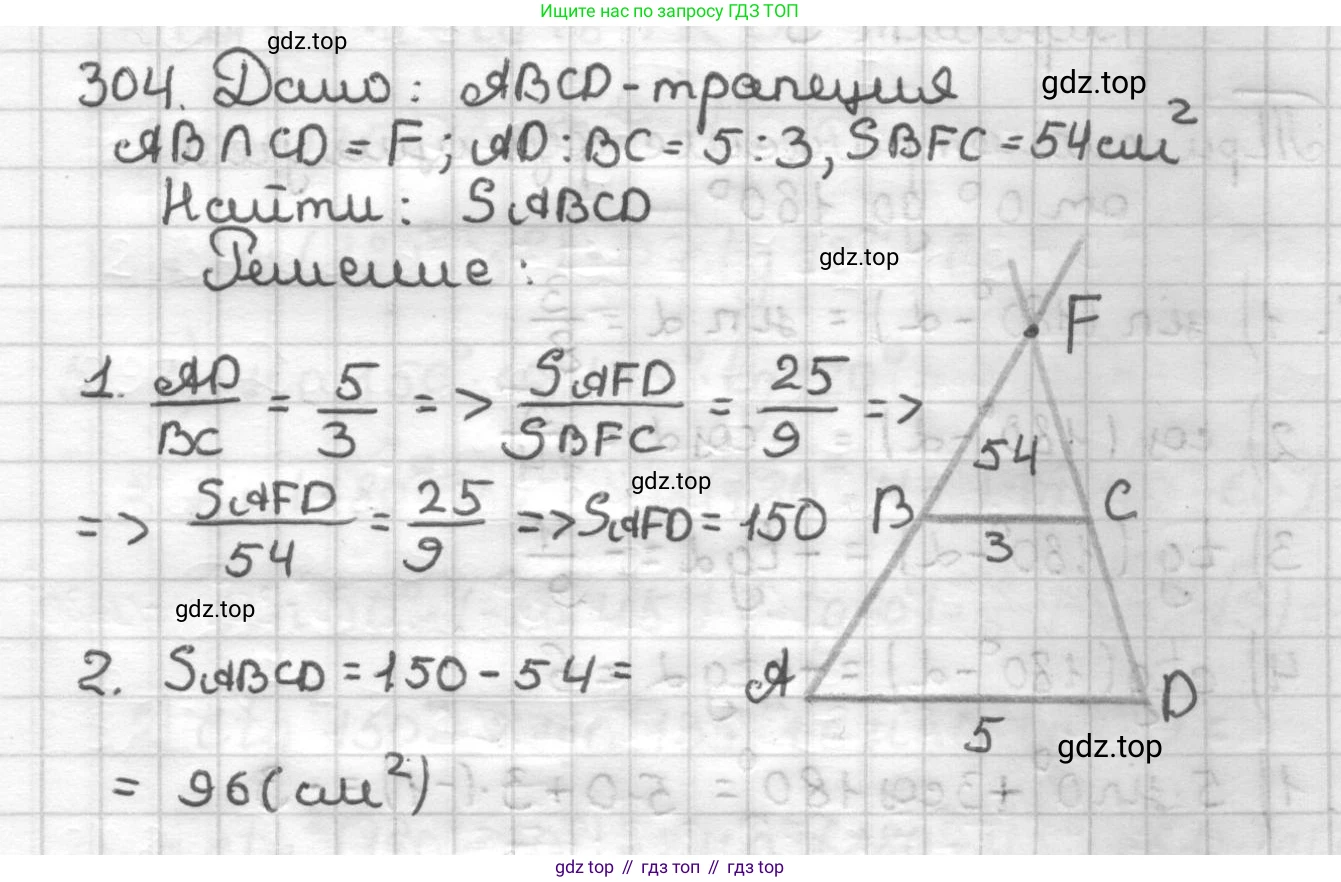 Ищите нас по запросу ГДЗ ТОП
gdz.top
304. Дано: ABCD - трапеция
gdz.top
AB ∩ CD = F; AD : BC = 5 : 3, SBFC = 54 см²
Найти: SABCD
Решение:
gdz.top
F
1. AD/BC = 5/3 => SAFD/SBFC = 25/9 =>
54
gdz.top
=> SAFD/54 = 25/9 => SAFD = 150
B
C
3
gdz.top
2. SABCD = 150 - 54 =
A
D
5
gdz.top
= 96 (см²)
gdz top // гдз топ // гдз top